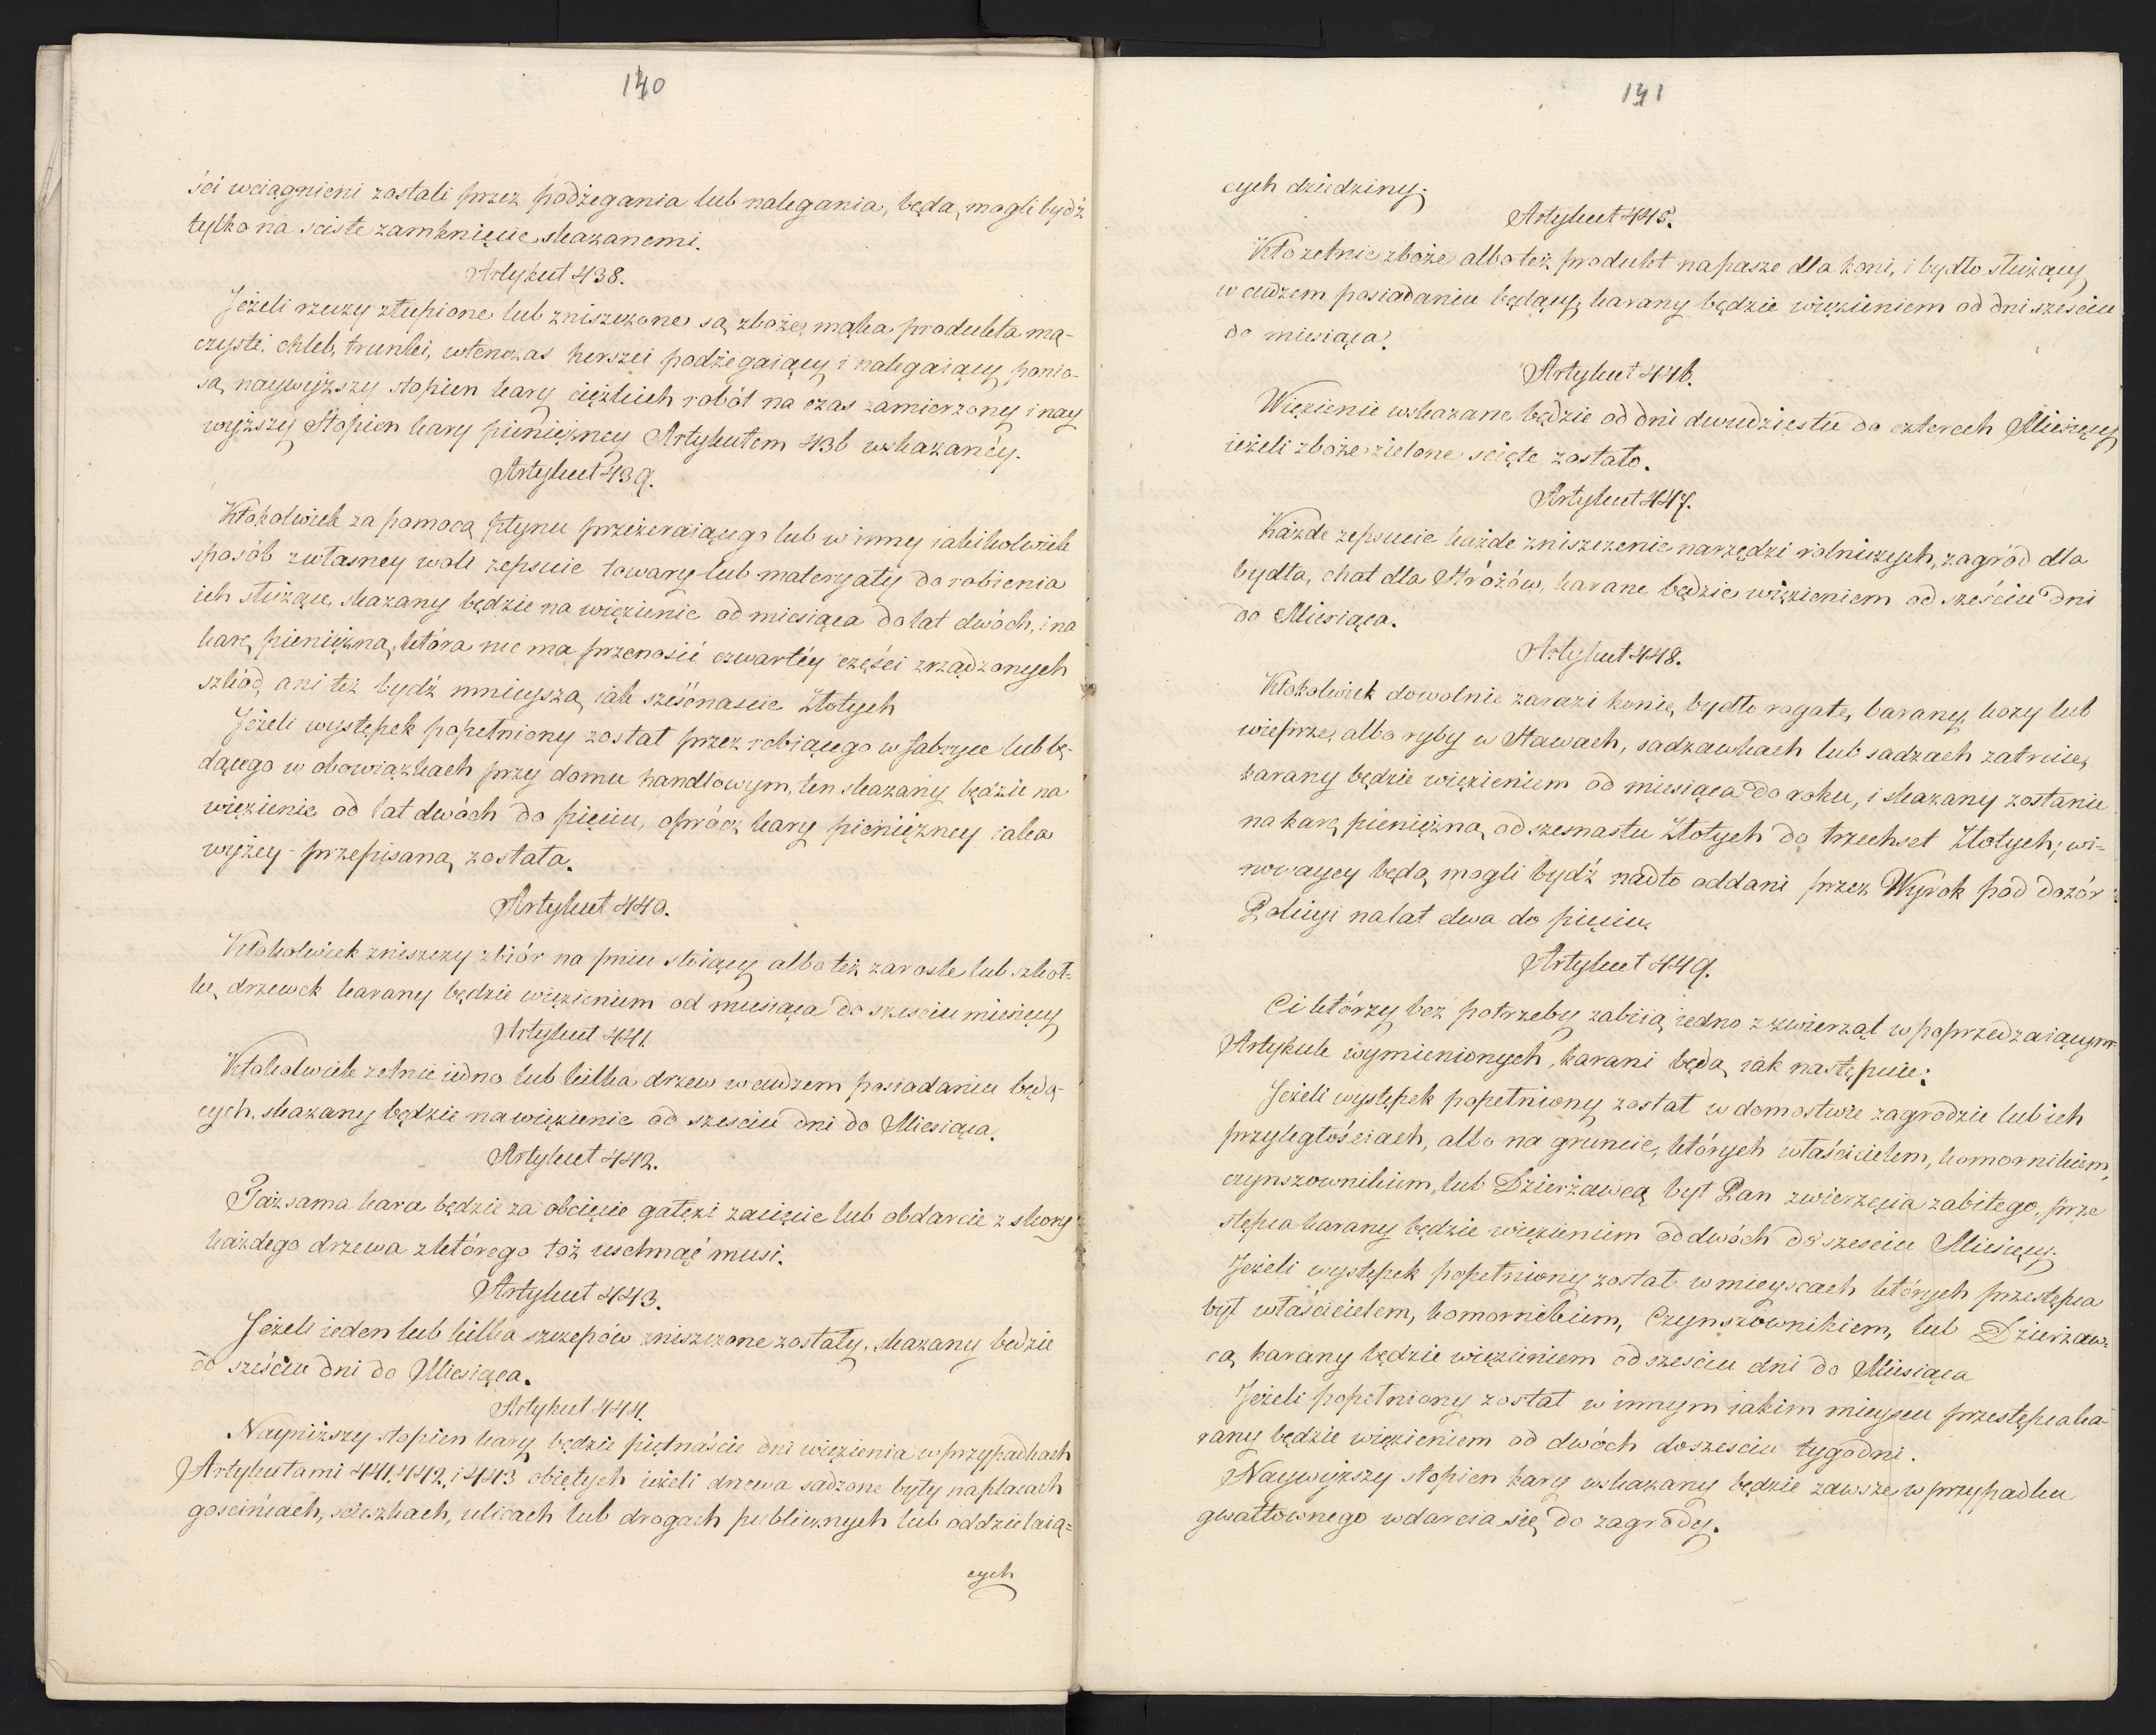 140
ści wciągnieni zostali przez podżegania lub nalegania, będą mogli bydź
tylko na sciste zamknięcie skazanemi.
Artykuł 438.
Jeżeli rzeczy złupione lub zniszczone są zboże, mąka produkta mą-
czyste, chleb, trunki, wtenczas herszci podżegaiący i nalegaiący ponio-
są naywyższy stopien kary ciężkich robót na czas zamierzony i nay
wyższy Stopien kary pieniężney Artykułem 436 wskazanéy.
Artykuł 439.
Ktokolwiek za pomocą płynu przeżeraiącego lub w inny iakikolwiek
sposób zwłasney woli zepsuie towary lub materyały do robienia
ich służące, skazany będzie na więzienie od miesiąca do lat dwóch, i na
karę pieniężną, która nie ma przenosić czwartéy części zrządzonych
szkód, ani też bydź mnieyszą iak szesnascie Złotych
Jeżeli występek popełniony został przez robiącego w fabryce lub bę-
dącego w obowiązkach przy domu handlowym, ten skazany będzie na
więzienie od lat dwóch do pięciu, oprócz kary pieniężney iaka
wyżey przepisaną została.
Artykuł 440.
Ktokolwiek zniszczy zbiór na pniu stoiący albo też zarosłe lub szkoł-
kę drzewek karany będzie więzieniem od miesiąca do szesciu miesięcy
Artykuł 441.
Ktokolwiek zetnie iedno lub kilka drzew w cudzem posiadaniu będą-
cych, skazany będzie na więzienie od szesciu dni do Miesiąca.
Artykuł 442.
Taż sama kara będzie za obcięcie gałęzi zacięcie lub obdarcie z skory
każdego drzewa z którego toż uschnąć musi.
Artykuł 443.
Jeżeli ieden lub kilka szczepów zniszczone zostały, skazany bedzie
do sześciu dni do Miesiąca.
Artykuł 444.
Nayniższy stopien kary będzie piętnaście dni więzienia w przypadkach
Artykułami 441. 442. i 443 obiętych ieżeli drzewa sadzone były na placach
goscińcach, scieszkach, ulicach lub drogach publicznych lub oddzielaią=
cych
141
cych dziedziny.
Artykuł 445.
Kto zetnie zboże albo też produkt na pasze dla koni, i bydło służący
w cudzem posiadaniu będący, karany będzie więzieniem od dni szesciu
do miesiąca.
Artykuł 446.
Więzienie wskazane będzie od dni dwudziestu do czterech Miesięcy
ieżeli zboże zielone scięte zostało.
Artykuł 447.
Każde zepsucie każde zniszczenie narzędzi rolniczych, zagród dla
bydła, chat dla Stróżów, karane będzie więzieniem od sześciu dni
do Miesiąca.
Artykuł 448.
Ktokolwiek dowolnie zarazi konie, bydło rogate, barany, kozy lub
wieprze, albo ryby w Stawach, sadzawkach lub sadzach zatruie,
karany będzie więzieniem od miesiąca do roku, i skazany zostanie
na karę pieniężną od szesnastu Złotych do trzechset Złotych; wi-
nowaycy będą mogli bydź nadto oddani przez Wyrok pod dozór
Policyi na lat dwa do pięciu.
Artykuł 449.
Ci którzy bez potrzeby zabiią iedno z zwierząt w poprzedzaiącym
Artykule wymienionych, karani będą iak następuie:
Jeżeli występek popełniony został w domostwie zagrodzie lub ich
przyległościach, albo na gruncie, których właścicielem, komornikiem,
czynszownikiem, lub Dzierżawcą był Pan zwierzęcia zabitego, prze
stępca karany będzie więzieniem od dwóch do szesciu Miesięcy.
Jeżeli występek popełniony został w mieyscach których przestępca
był właścicielem, komornikiem, Czynszownikiem, lub Dzierżaw=
cą karany będzie więzieniem od szesciu dni do Miesiąca
Jeżeli popełniony został w innym iakim mieyscu przestępca ka-
rany będzie więzieniem od dwóch do szesciu tygodni.
Naywyższy stopien kary wskazany będzie zawsze w przypadku
gwałtownego wdarcia się do zagrody.